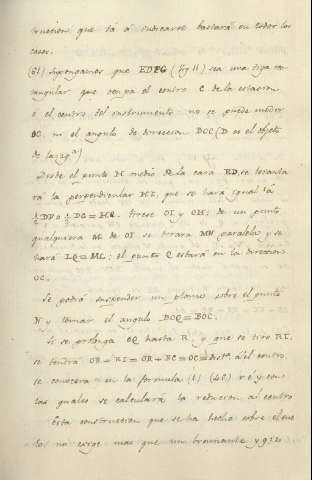 truccion que vá á indicarse bastará en todos los
casos.
(61) Supongamos que EDFG (fig 11) sea una figura rec
tangular que ocupa el centro C de la estacion
ó el centro del instrumento no se puede medir
OC, ni el angulo de direccion DOC (D es el objeto
de la izqª)
Desde el punto H medio de la cara ED, se levanta
rá la perpendicular HI, que se hará igual á
tirese OI y OH; de un punto
qualquiera M de OI se tirara MN paralela y se
hará LQ=ML; el punto Q estará en la direccion
OC.
Se podrá suspender un plomo sobre el punto
N y tomar el angulo DOQ=BOC.
Si se prolonga OQ hasta R, y que se tire RI,
se tendrá OR+RI=OR+RC=OC=distª al centro,
se conocerá en la formula (48) r é y con
las quales se calculará la reducion al centro
Esta construccion que se ha hecho sobre el sue
lo no exige mas que un